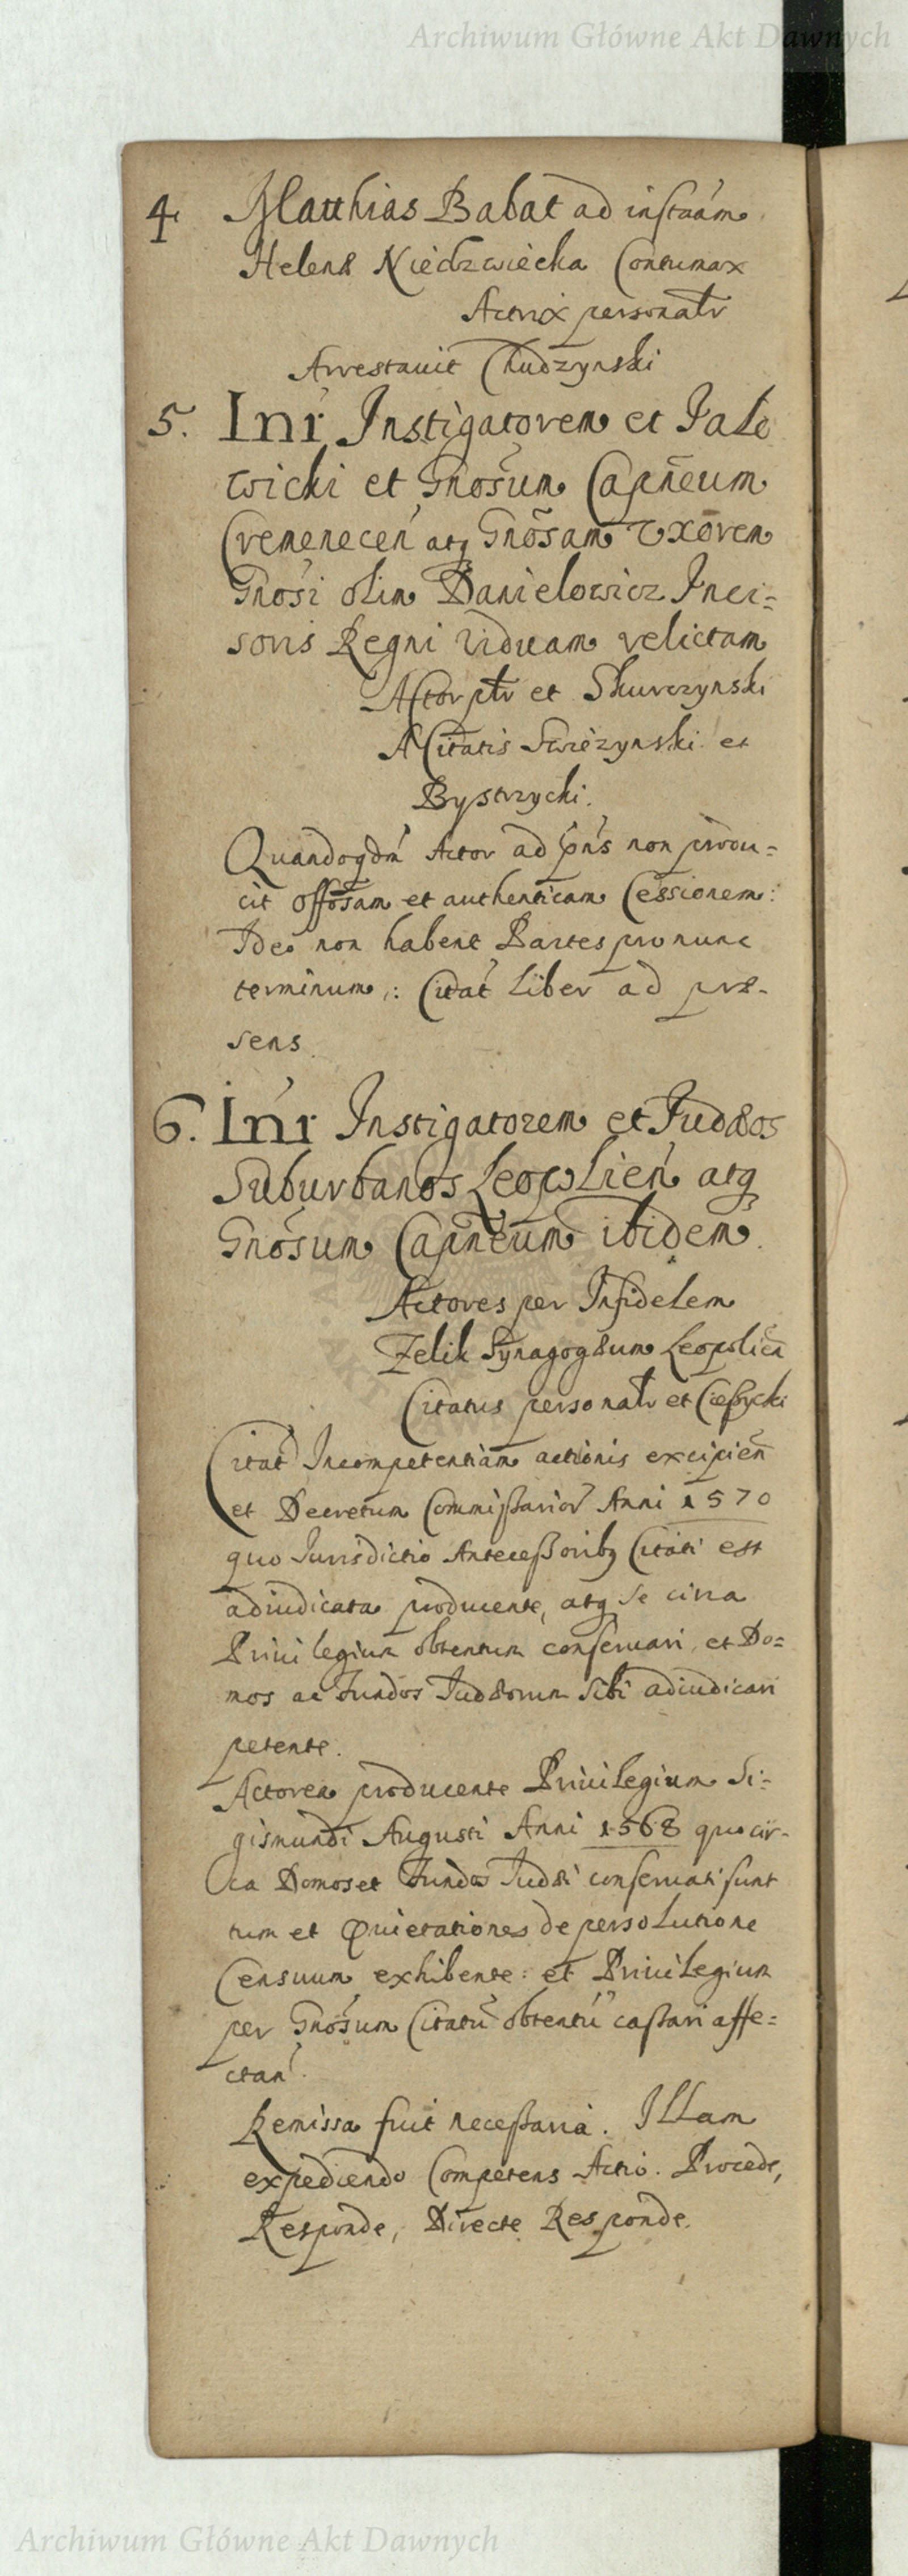 Archiwum Główne Akt Dawnych
4 Matthias Babat ad instaam
Helenæ Niedzwiecka Contumax
Actrix personalr
Arrestauit Chudzynski
5. Inr Instigatorem et Jalo
wicki et Gnosum Capneum
Cremenecen atq Gnosam Vxorem
Gnosi olim Danielowicz Inci=
soris Regni Viduam relictam
Actor plr et Skurczynski
A Citatis Swiezynski et
Bystrzycki.
Quandoqdm Actor ad pns non produ=
cit offosam et authenticam Cessionem:
Ideo non habent Partes pro nunc
terminum: Citat Liber ad præ-
sens
6. Inr Instigatorem et Judæos
Suburbanos Leopolien atq
Gnosum Capneum ibidem
Actores per Infidelem
Zelik Synagogæum Leopolien
Citatus personalr et Ciessycki
Citat Incompetentiam actionis excipien
et Decretum Commissarior Anni 1570
quo Jurisdictio Antecessoribq Citati est
adiudicata producente, atq se circa
Priuilegium obtentum conseruari, et Do=
mos ac Fundos Judæorum sibi adiudicari
petente.
Actorea producente Priuilegium Si=
gismundi Augusti Anni 1568 quo cir-
ca Domos et Fundos Judæi conseruati sunt
tum et Quietationes de persolutione
Censuum exhibente: et Priuilegium
per Gnosum Citatu obtentu cassari affe=
ctan
Remissa fuit necessaria. Illam
expediendo Competens Actio. Procede,
Responde, Directe Responde.
Archiwum Główne Akt Dawnych